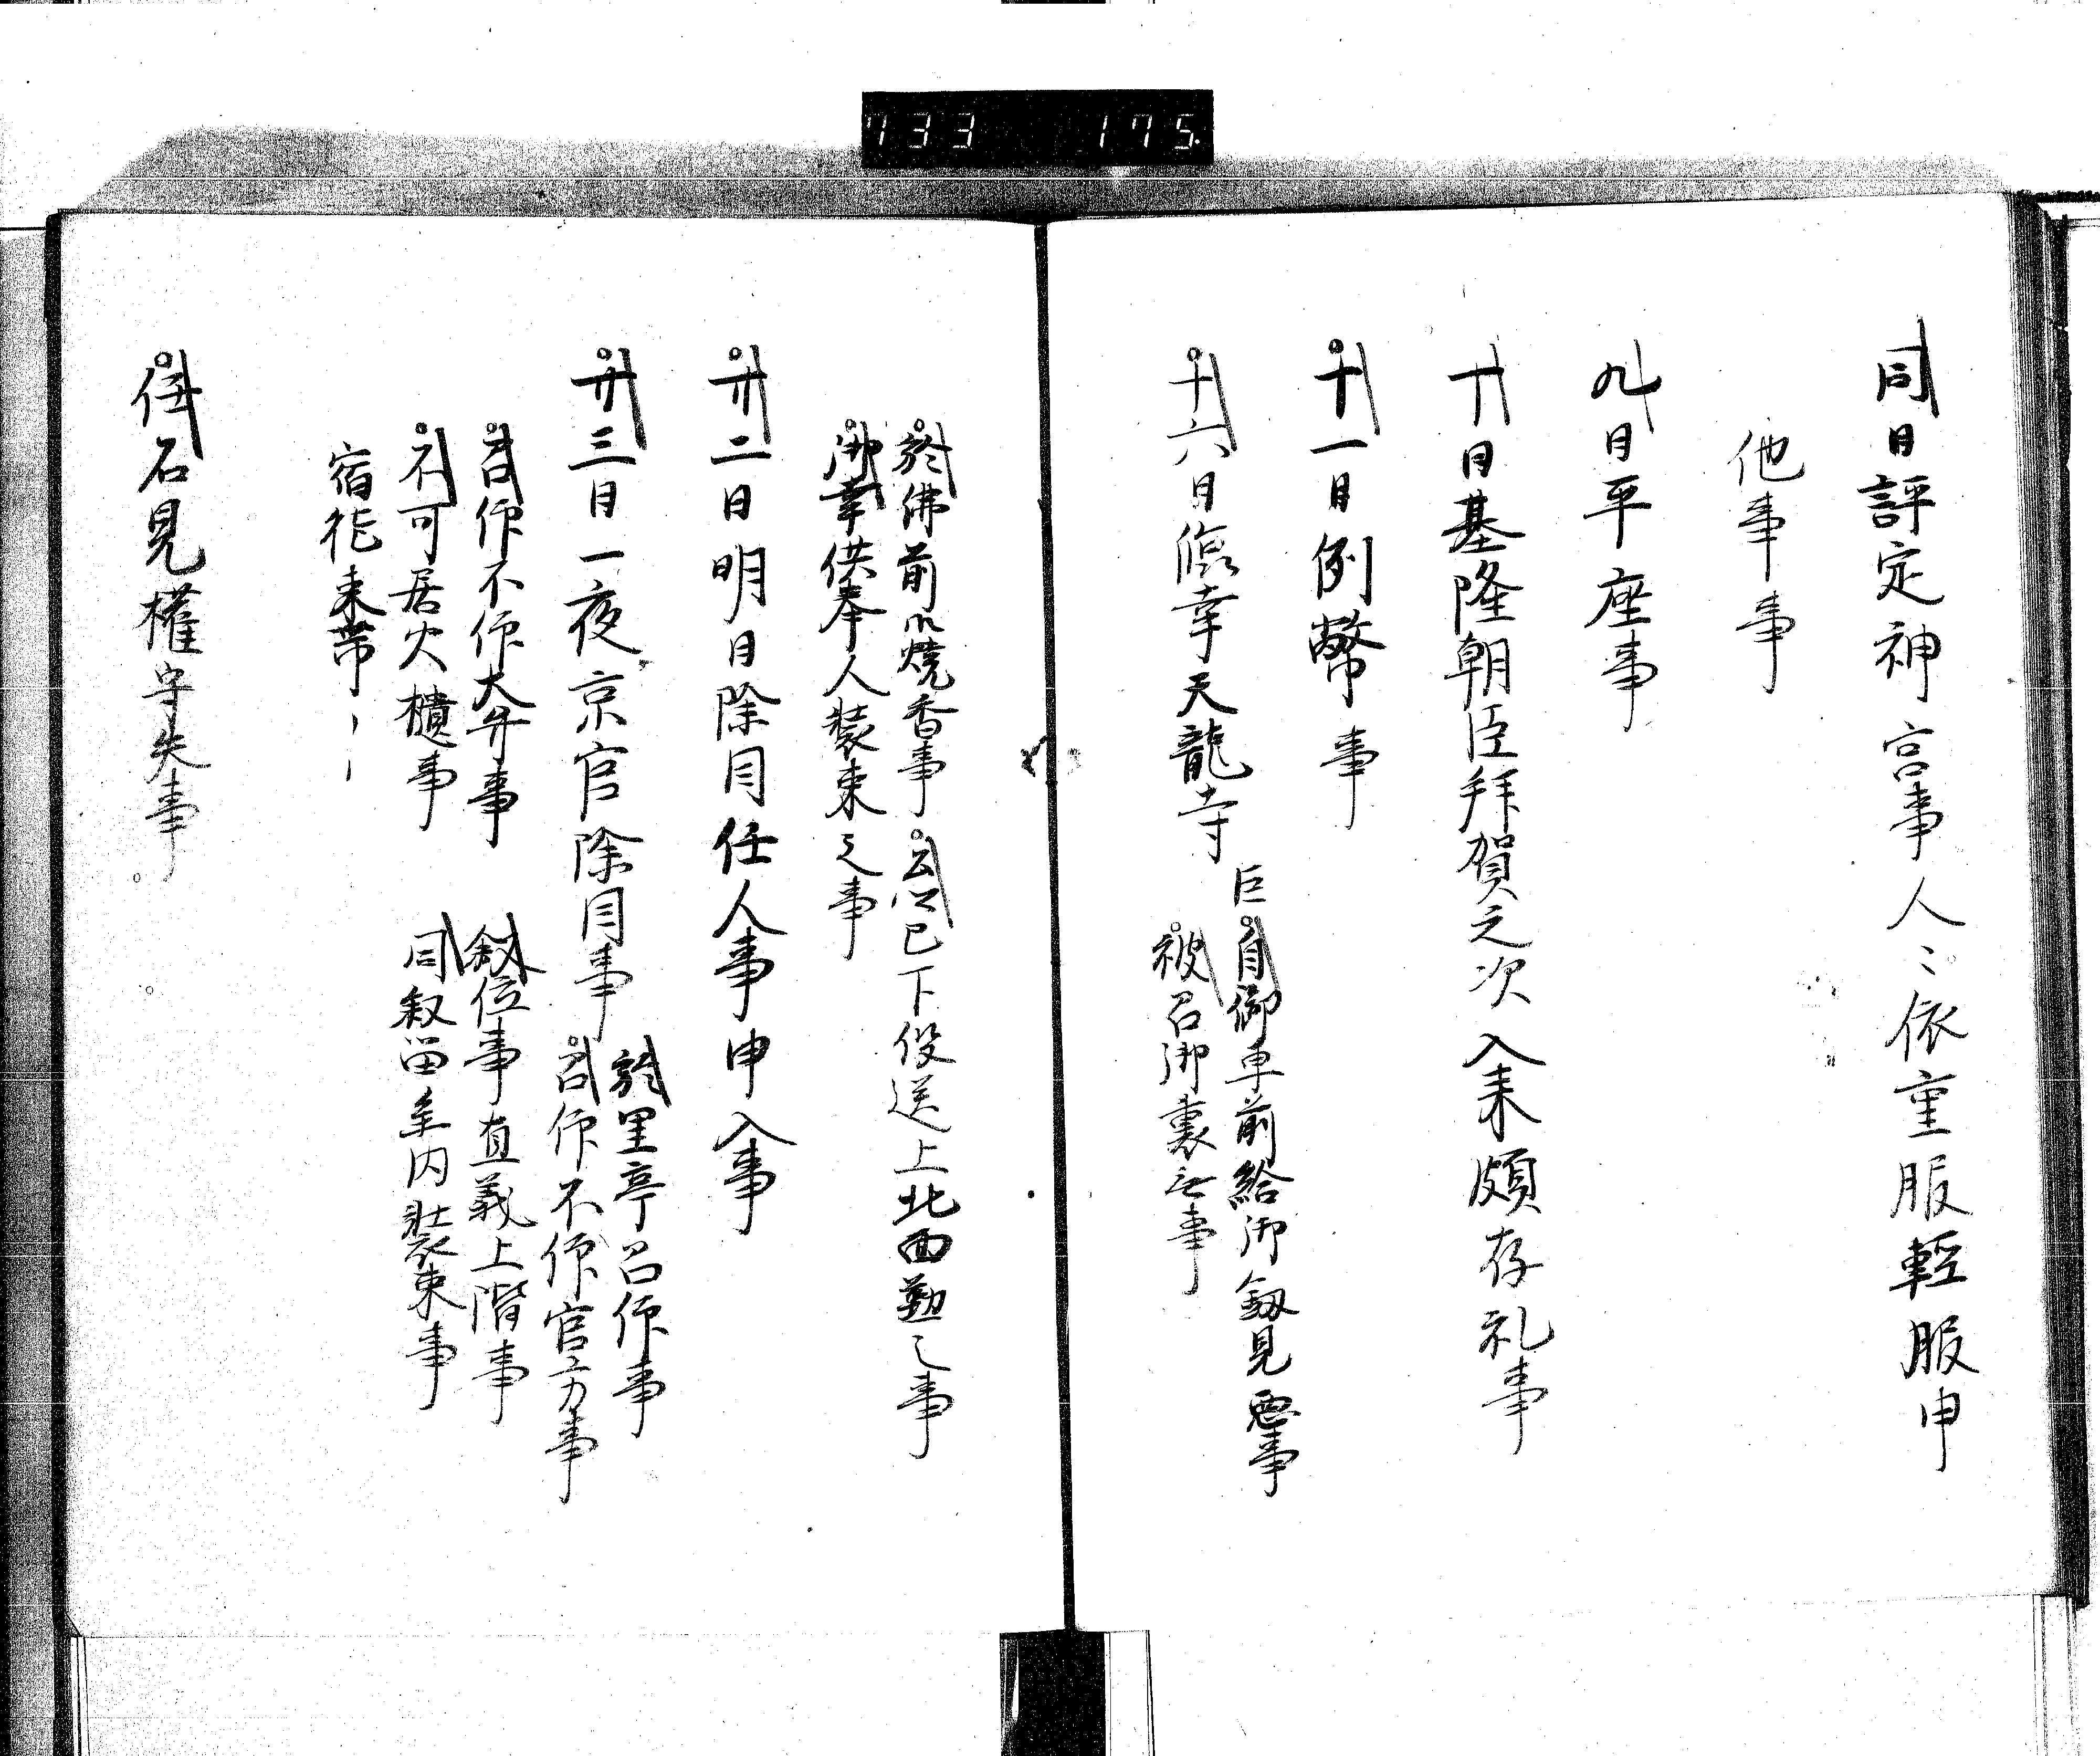 733 175
同日評定神宮事人〻依重服軽服申
他事事
九日平座事
十日基隆朝臣拝賀之次入来頗存礼事
十一日例幣事
十六日臨幸天龍寺
自御車前給御釼見悪事
被召御裏無事
於佛前御焼香事 公卿已下役送上北面勤之事
御幸供奉人装束之事
廿二日明日除目任人事申入事
廿三日一夜京官除目事
於里亭召仰事
召仰不仰官方事
召仰不仰大弁事 叙位事直義上階事
不可居火櫃事 同叙留参内装束事
宿衣束帯
任石見権守失事